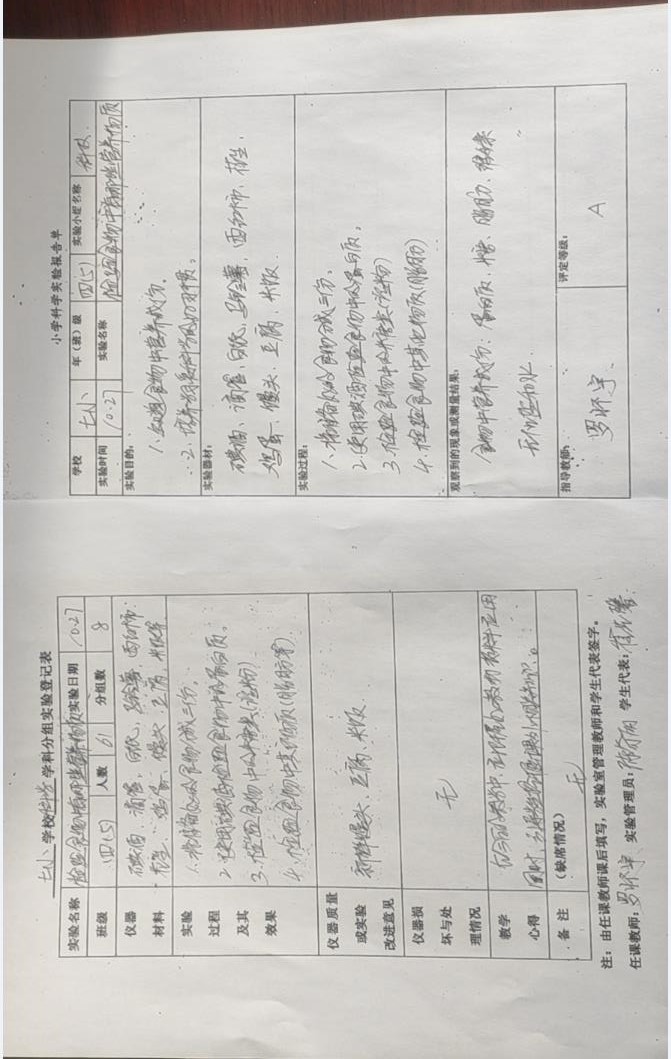 七小 学校 科学 学科分组实验登记表
实验名称 检验食物中有哪些营养物质 实验日期 10.27
班级 四(5) 人数 61 分组数 8
仪器 碘酒、滴管、白纸、马铃薯、西红柿、
材料 花生、鸡蛋、馒头、豆腐、米饭等
实验 1、将准备好的食物分成三份。
过程 2、使用碘酒检验食物中的蛋白质。
及其 3、检验食物中的糖类(淀粉)
效果 4、检验食物中其他物质(脂肪等)
仪器质量
或实验 新鲜馒头、豆腐、米饭
改进意见
仪器损
坏与处 无
理情况
教学
心得
备注 (缺席情况) 无
注:由任课教师课后填写,实验室管理教师和学生代表签字。
任课教师: 罗怀宇 实验管理员: 学生代表:
小学科学实验报告单
学校 七小 年(班)级 四(5) 实验小组名称
实验时间 10.27 实验名称 检验食物中有哪些营养物质
实验目的:
1、认识食物中营养成分。
2、培养探究科学的好习惯。
实验器材:
碘酒、滴管、白纸、马铃薯、西红柿、花生、
鸡蛋、馒头、豆腐、米饭
实验过程:
1、将准备好的食物分成三份。
2、使用碘酒检验食物中的蛋白质。
3、检验食物中的糖类(淀粉)
4、检验食物中其他物质(脂肪)
观察到的现象或测量结果:
食物中营养成分:蛋白质、糖、脂肪、维生素
无机盐和水
指导教师: 罗怀宇 评定等级: A